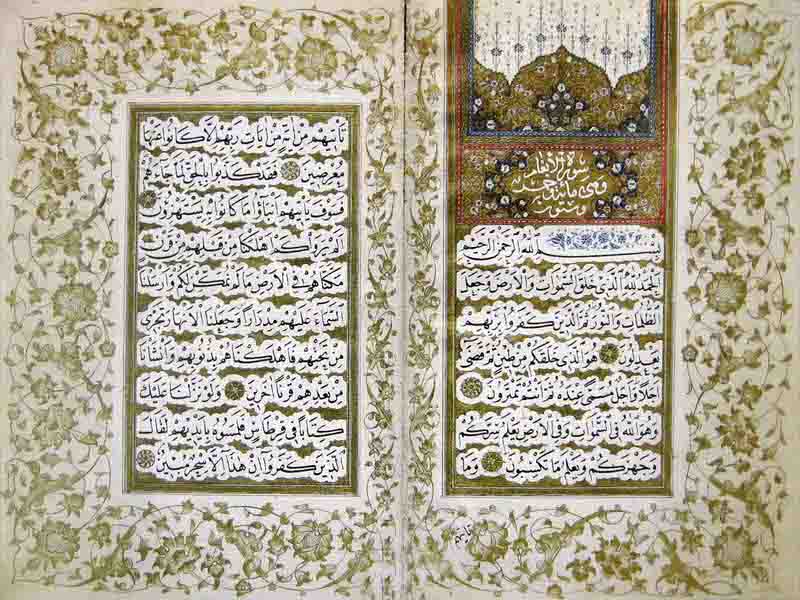 سورة الانعام
وهى مائة
وستون
بِسْمِ اللهِ الرَّحْمٰنِ الرَّحِيمِ
اَلْحَمْدُ لِلّٰهِ الَّذِي خَلَقَ السَّمٰوَاتِ وَالْاَرْضَ وَجَعَلَ
الظُّلُمَاتِ وَالنُّورَ ثُمَّ الَّذِينَ كَفَرُوا بِرَبِّهِمْ
يَعْدِلُونَ هُوَ الَّذِي خَلَقَكُمْ مِنْ طِينٍ ثُمَّ قَضٰى
اَجَلًا وَاَجَلٌ مُسَمًّى عِنْدَهُ ثُمَّ اَنْتُمْ تَمْتَرُونَ
وَهُوَ اللهُ فِي السَّمٰوَاتِ وَفِي الْاَرْضِ يَعْلَمُ سِرَّكُمْ
وَجَهْرَكُمْ وَيَعْلَمُ مَا تَكْسِبُونَ وَمَا
تَأْتِيهِمْ
تَأْتِيهِمْ مِنْ اٰيَةٍ مِنْ اٰيَاتِ رَبِّهِمْ اِلَّا كَانُوا عَنْهَا
مُعْرِضِينَ فَقَدْ كَذَّبُوا بِالْحَقِّ لَمَّا جَاءَهُمْ
فَسَوْفَ يَأْتِيهِمْ اَنْبَاؤُا مَا كَانُوا بِهِ يَسْتَهْزِؤُنَ
اَلَمْ يَرَوْا كَمْ اَهْلَكْنَا مِنْ قَبْلِهِمْ مِنْ قَرْنٍ
مَكَّنَّاهُمْ فِي الْاَرْضِ مَا لَمْ نُمَكِّنْ لَكُمْ وَاَرْسَلْنَا
السَّمَاءَ عَلَيْهِمْ مِدْرَارًا وَجَعَلْنَا الْاَنْهَارَ تَجْرِي
مِنْ تَحْتِهِمْ فَاَهْلَكْنَاهُمْ بِذُنُوبِهِمْ وَاَنْشَأْنَا
مِنْ بَعْدِهِمْ قَرْنًا اٰخَرِينَ وَلَوْ نَزَّلْنَا عَلَيْكَ
كِتَابًا فِي قِرْطَاسٍ فَلَمَسُوهُ بِاَيْدِيهِمْ لَقَالَ
الَّذِينَ كَفَرُوا اِنْ هٰذَا اِلَّا سِحْرٌ مُبِينٌ